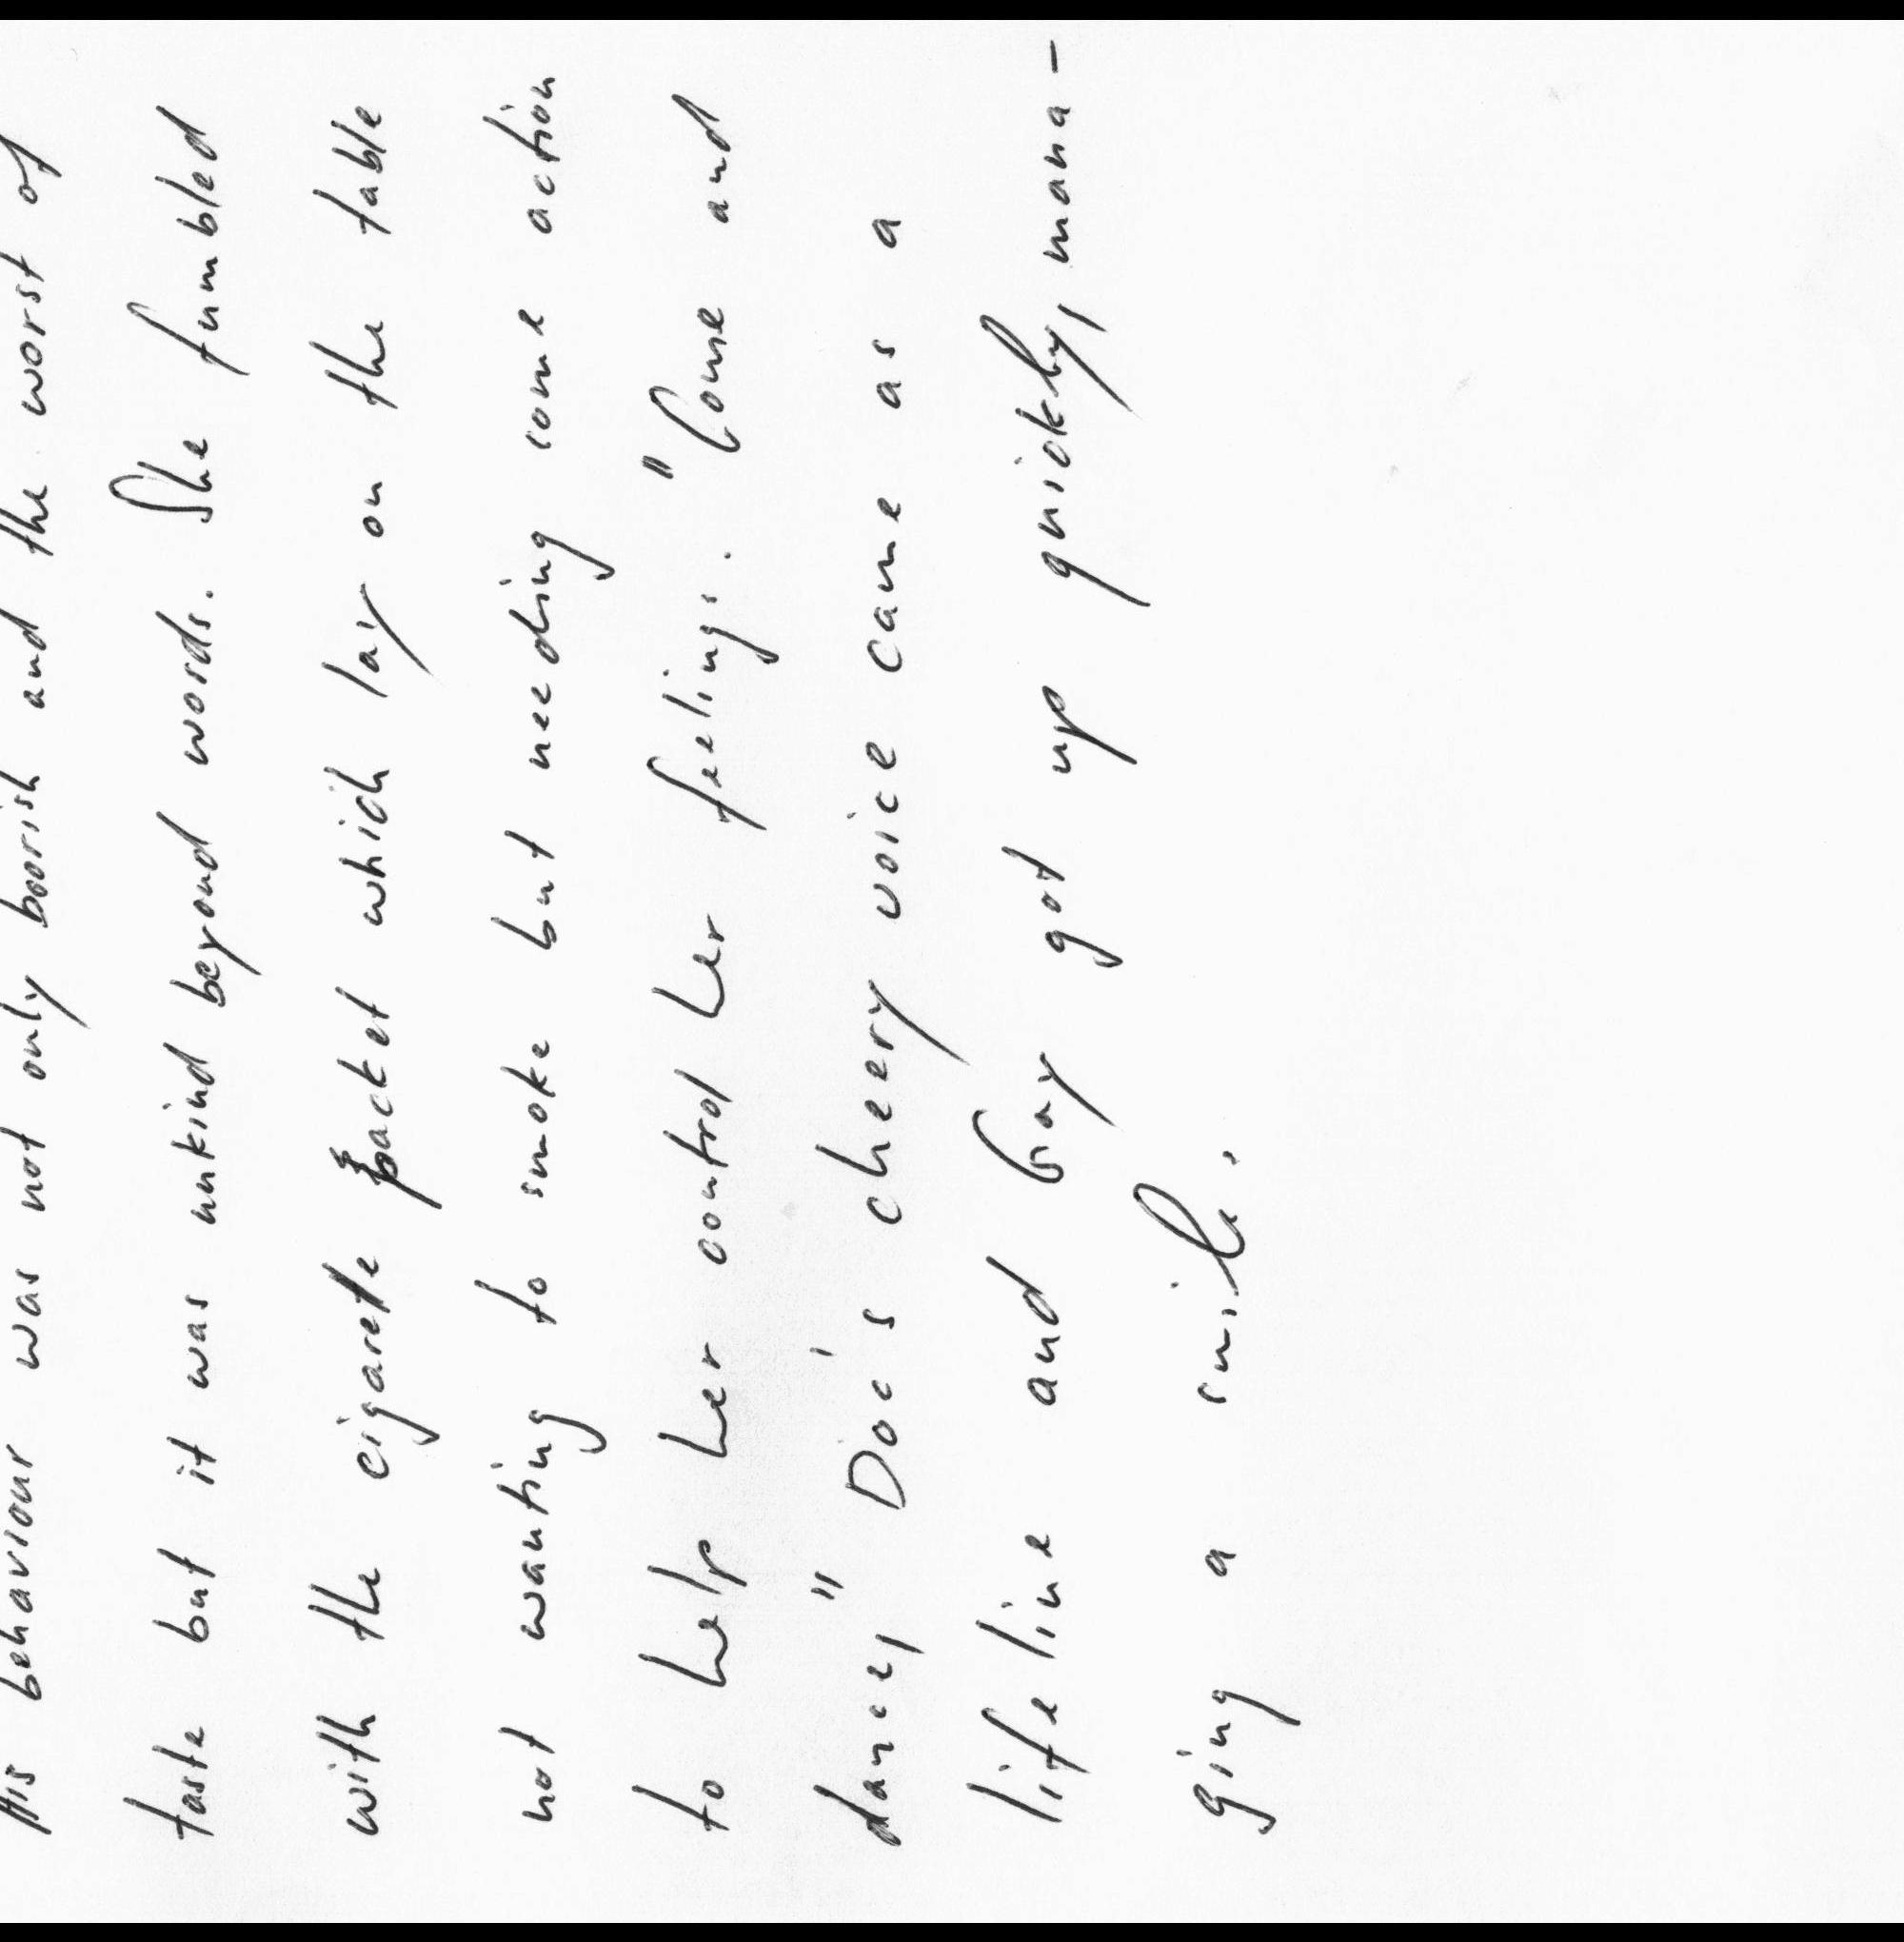 His behaviour was not only boorish and the worst of
taste but it was unkind beyond words. She fumbled
with the cigarete packet which lay on the table
not wanting to smoke but needing some action
to help her control her feelings. "Come and
dance," Doc's cheery voice came as a
life line and Gay got up quickly, mana-
ging a smile.